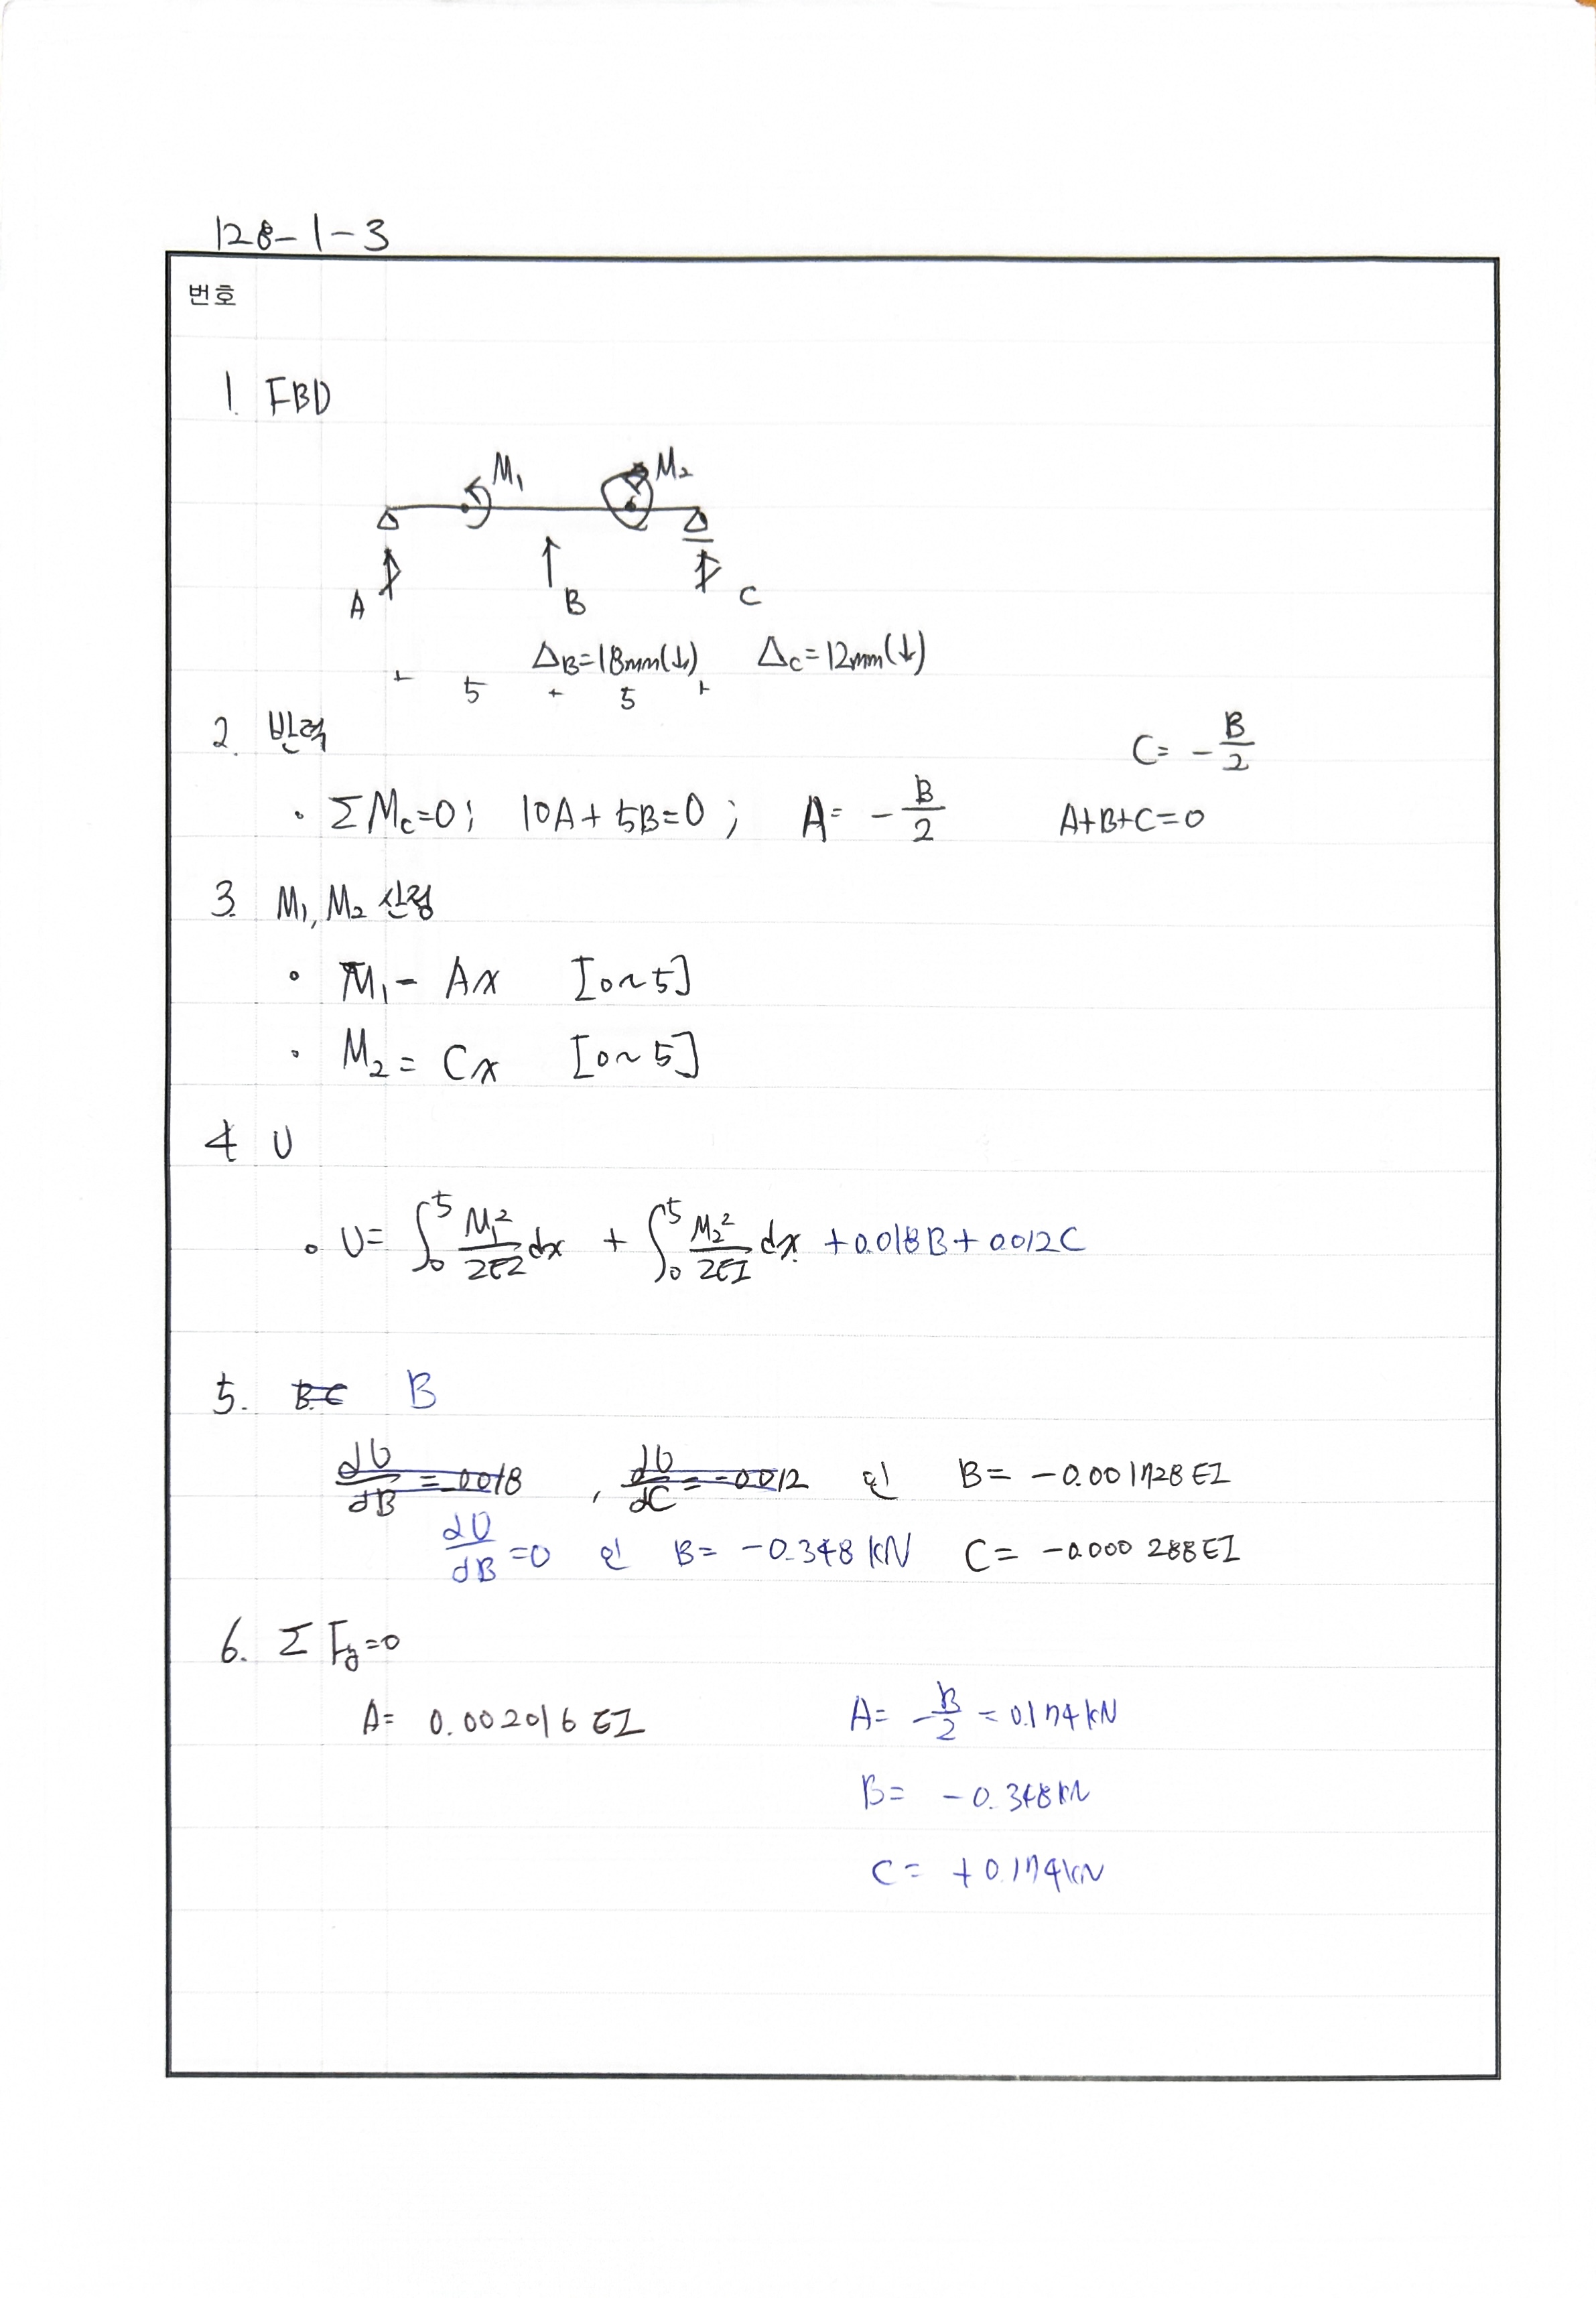 128-1-3
번호
1. FBD
M₁ M₂
A B C
Δ_B=18mm(↓) Δ_C=12mm(↓)
5 5
2. 반력
C= -B/2
· ΣM_C=0; 10A+5B=0; A= -B/2 A+B+C=0
3. M₁, M₂ 산정
· M₁= Ax [0~5]
· M₂= Cx [0~5]
4 U
· U= ∫₀⁵ M₁²/2EI dx + ∫₀⁵ M₂²/2EI dx +0.018B+0.012C
5. B.C B
dU/dB = -0.018 , dU/dC = -0.012 인 B= -0.001728EI
dU/dB =0 인 B= -0.348 kN C= -0.000 288EI
6. ΣFy=0
A= 0.002016 EI A= -B/2 = 0.174kN
B= -0.348kN
C= +0.174kN